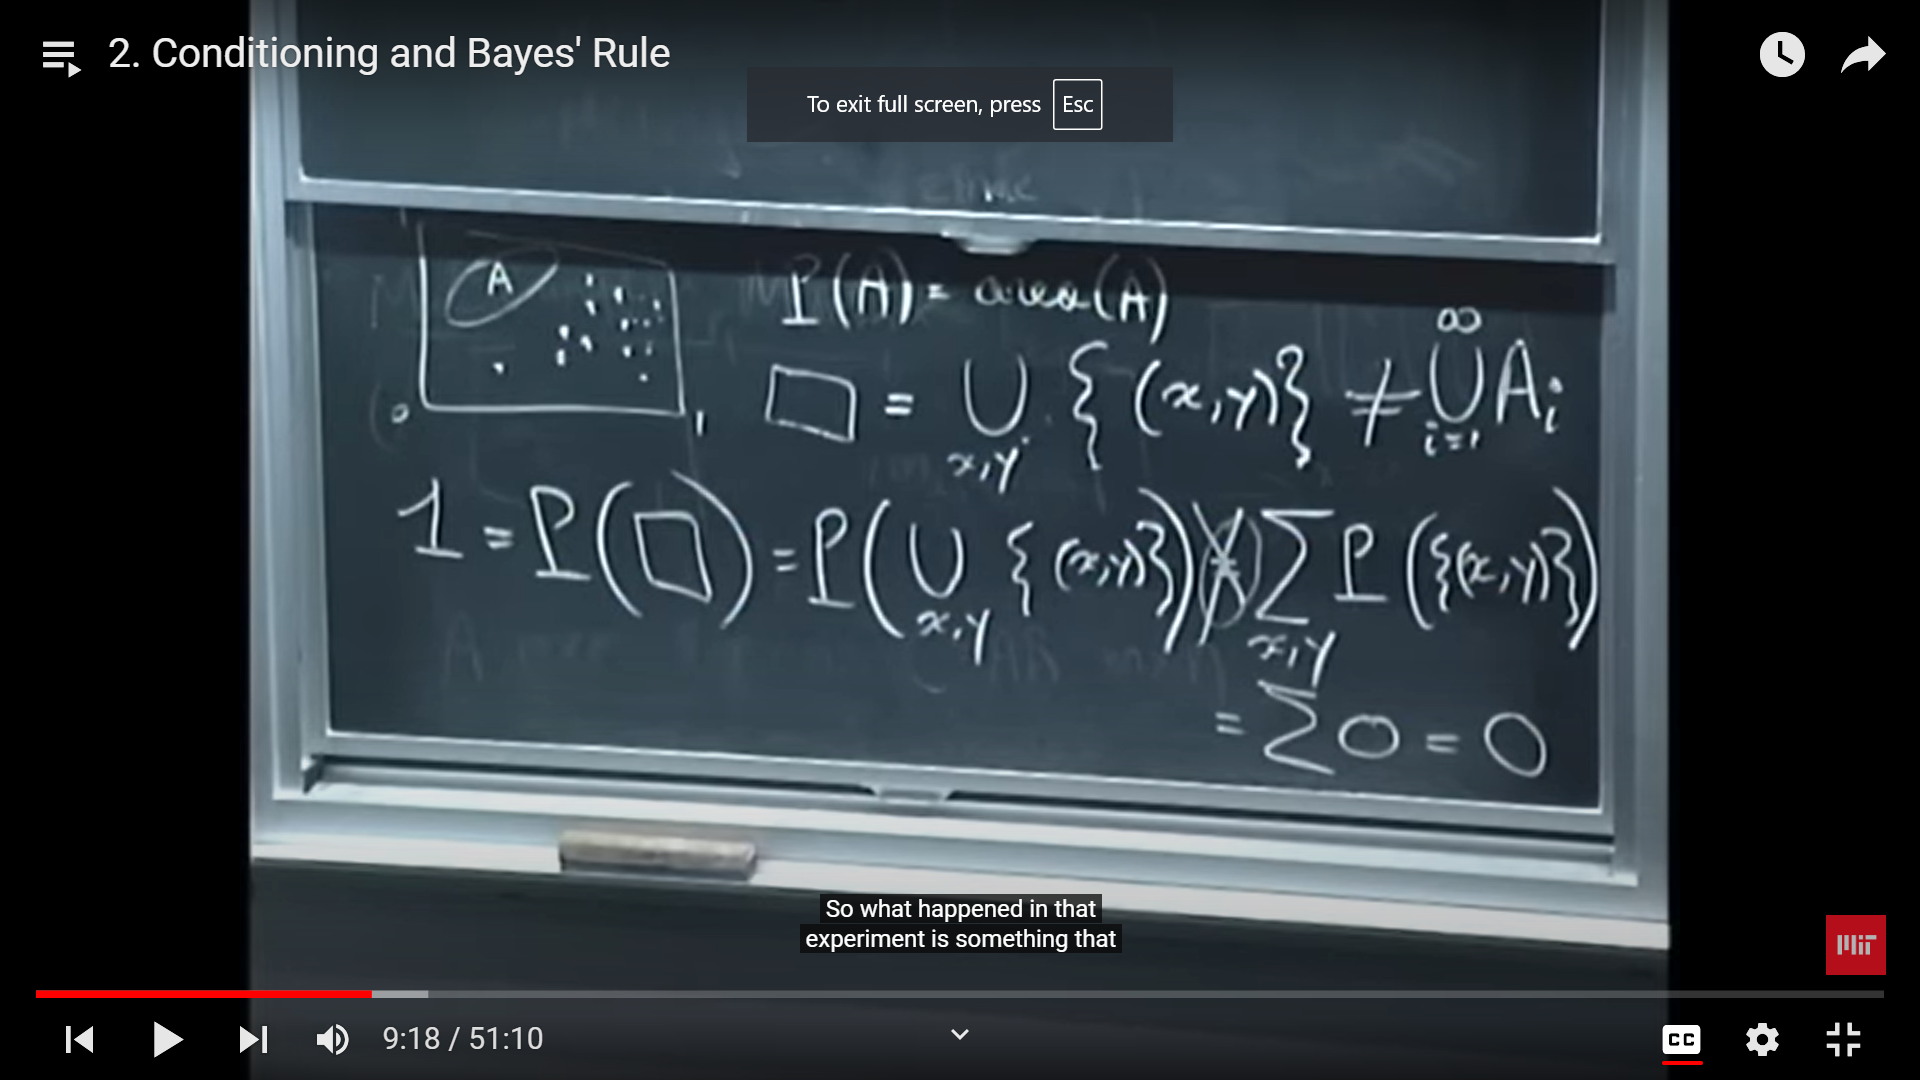 2. Conditioning and Bayes' Rule
To exit full screen, press Esc
A
P(A) = area(A)
0
1
□ = ∪ {(x,y)} ≠ ∞ ∪ i=1 A i
x,y
1 = P(□) = P(∪ {(x,y)}) ∑ P({(x,y)})
x,y x,y
= ∑ 0 = 0
So what happened in that
experiment is something that
MIT
9:18 / 51:10
CC